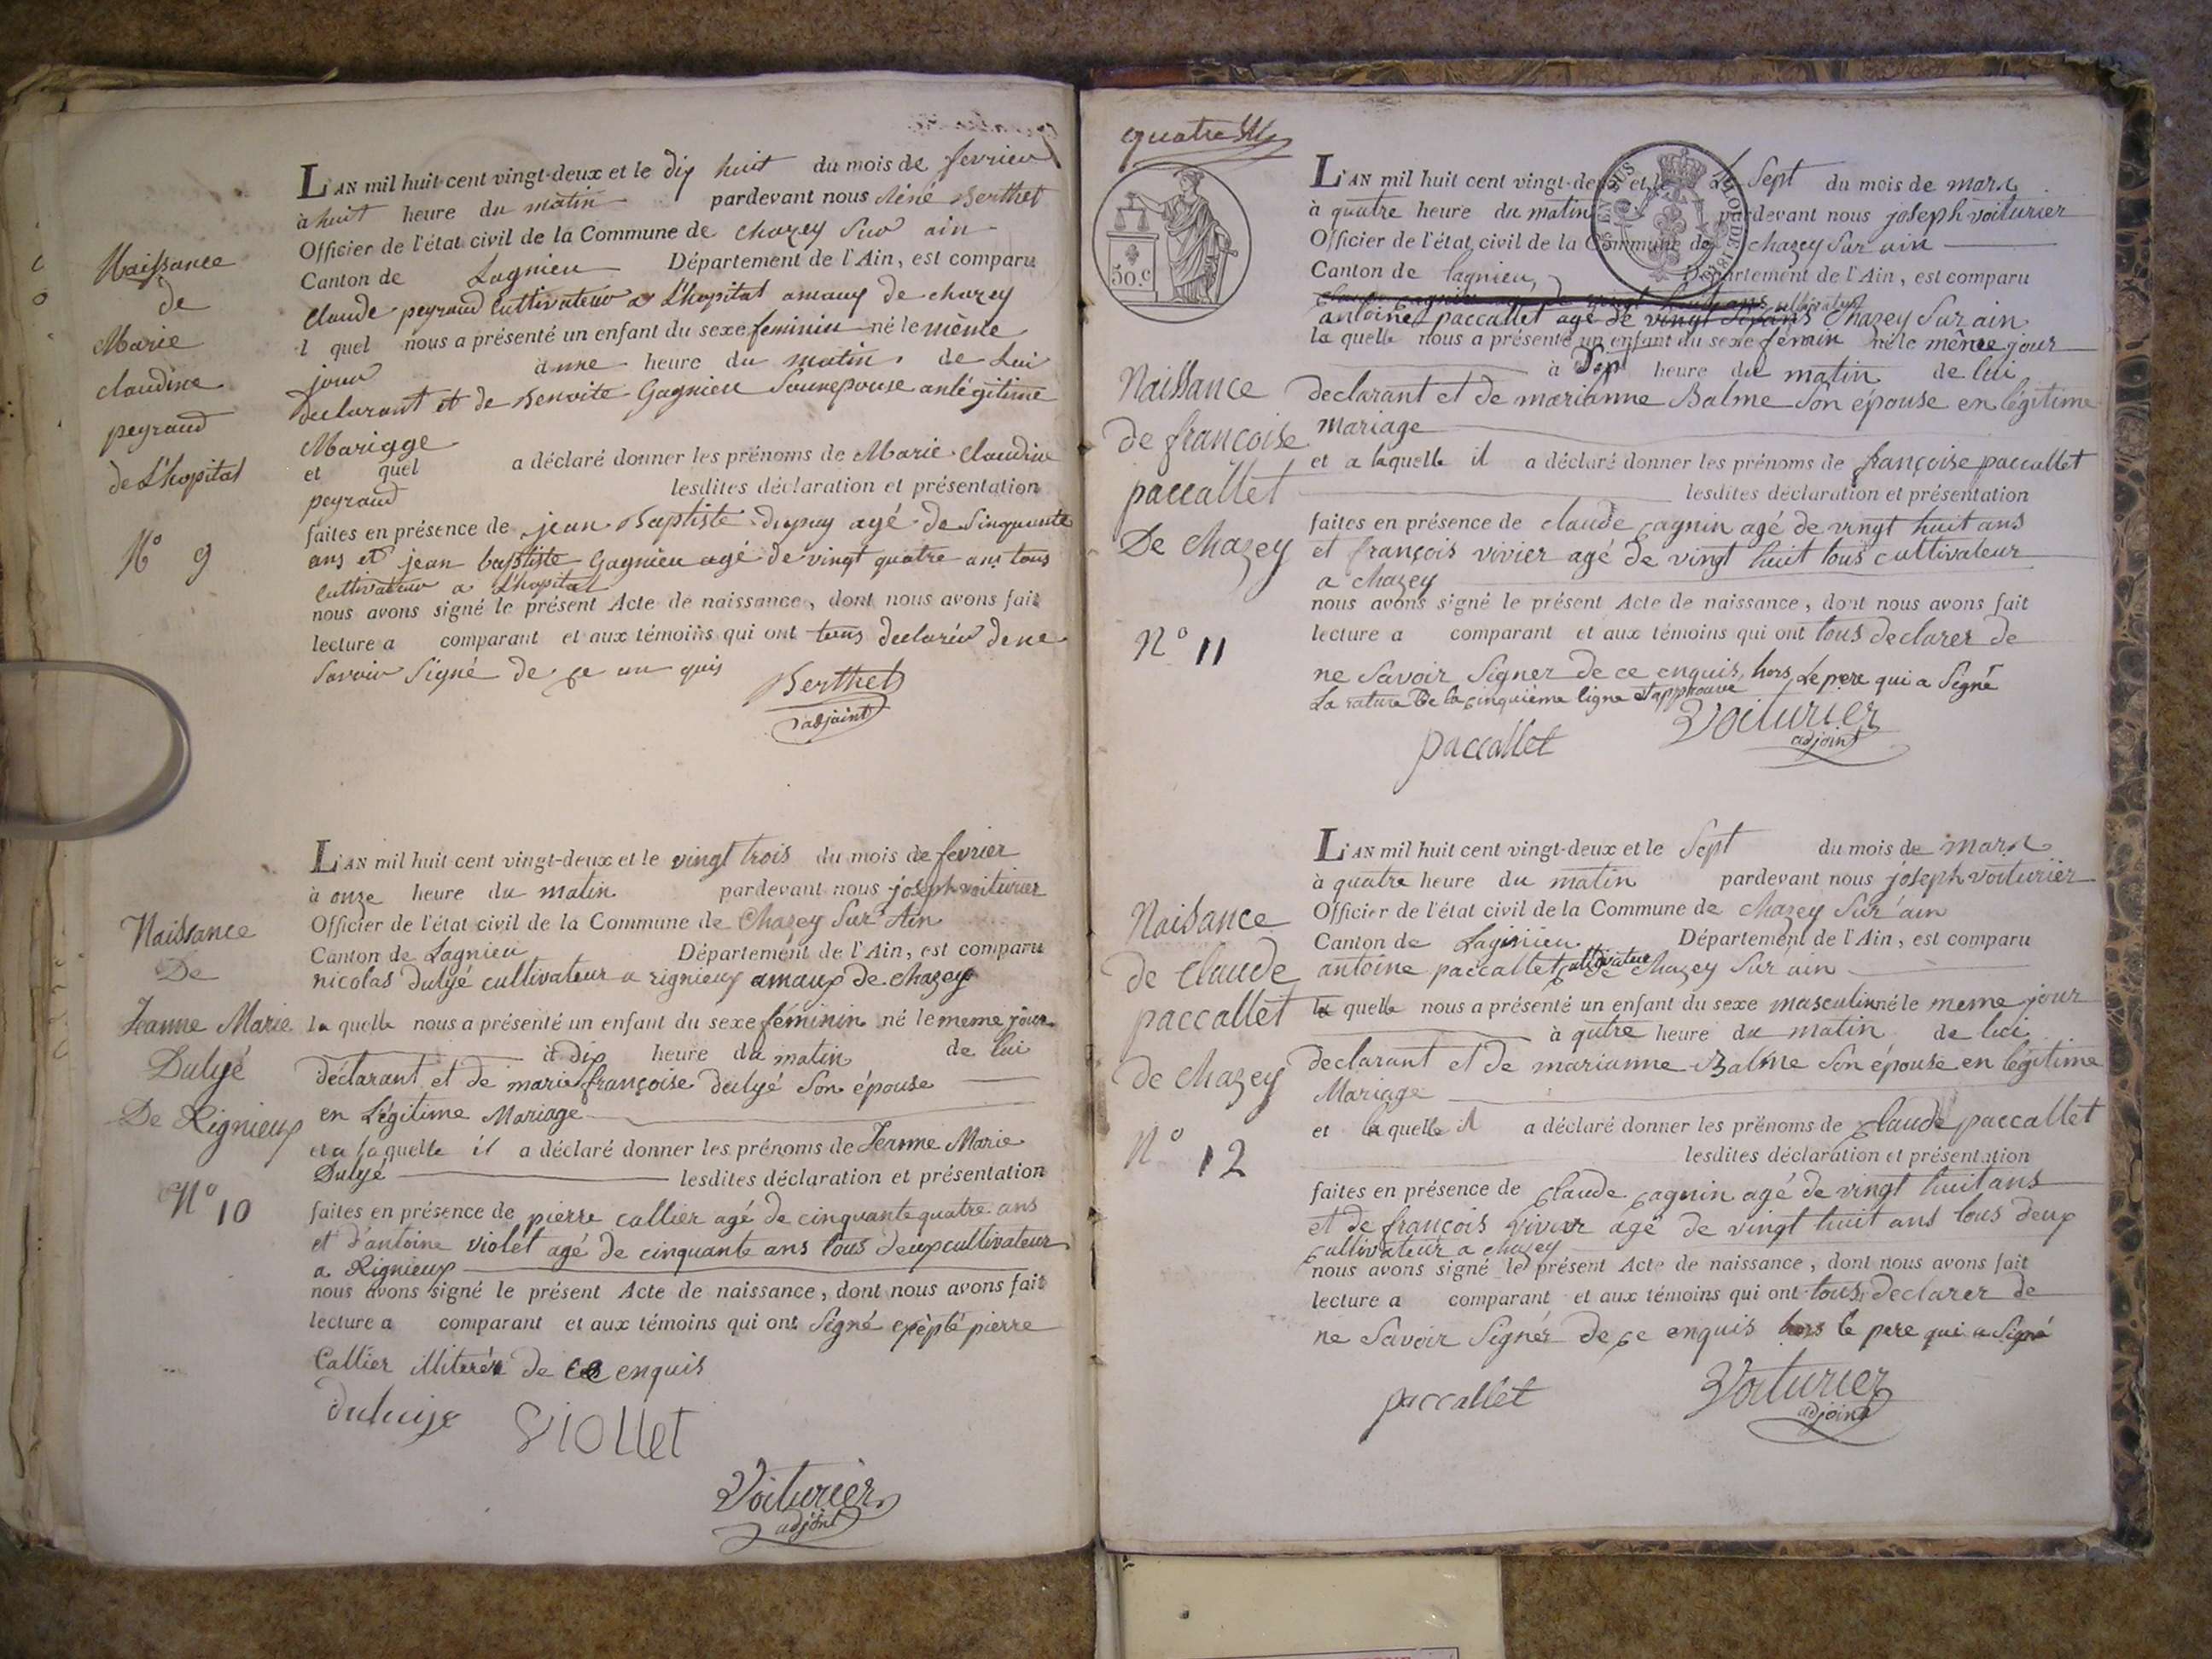 Naissance
de
Marie
claudine
peyraud
de L'hopital
N° 9
L'AN mil huit cent vingt-deux et le dix huit du mois de fevrier
à huit heure du matin pardevant nous Réné Berthet
Officier de l'état civil de la Commune de chazey Sur ain
Canton de Lagnieu Département de l'Ain, est comparu
Claude peyraud Cultivateur a L'hopital amaux de chazey
l quel nous a présenté un enfant du sexe feminin né le même
jour à une heure du matin de Lui
declarant et de Benoite Gagnieu Son epouse en légitime
Mariage
et quel a déclaré donner les prénoms de Marie Claudine
peyraud lesdites déclaration et présentation
faites en présence de jean Baptiste dupuy agé de Sinquante
ans et jean baptiste Gagnieu agé de vingt quatre ans tous
Cultivateur a L'hopital
nous avons signé le présent Acte de naissance, dont nous avons fait
lecture a comparant et aux témoins qui ont tous declaréu de ne
Savoir Signé de ce un quis
Berthet
adjoint
Naissance
De
Jeanne Marie
Dulyé
De Rignieux
N° 10
L'AN mil huit cent vingt-deux et le vingt trois du mois de fevrier
à onze heure du matin pardevant nous joseph voiturier
Officier de l'état civil de la Commune de Chazey Sur Ain
Canton de Lagnieu Département de l'Ain, est comparu
nicolas Dulyé cultivateur a rignieux amaux de chazey
la quelle nous a présenté un enfant du sexe féminin né le meme jour
à dix heure du matin de lui
déclarant et de marie françoise dulyé Son épouse
en Légitime Mariage
et a laquelle il a déclaré donner les prénoms de Jeanne Marie
Dulyé lesdites déclaration et présentation
faites en présence de pierre callier agé de cinquante quatre ans
et d'antoine violet agé de cinquante ans tous deux cultivateur
a Rignieux
nous avons signé le présent Acte de naissance, dont nous avons fait
lecture a comparant et aux témoins qui ont Signé exèpté pierre
Callier illiteréré de ce enquis
duluije Viollet
Voiturier
adjoint
quatre
50.c
Naissance
de françoise
paccallet
De Chazey
N° 11
L'AN mil huit cent vingt-deux et le Sept du mois de mars
à quatre heure du matin pardevant nous joseph voiturier
Officier de l'état civil de la Commune de chazey Sur ain
Canton de lagnieu, Département de l'Ain, est comparu
cultivateur
antoine paccallet agé de vingt Sept ans Chazey Sur ain
la quelle nous a présenté un enfant du sexe fémnin né le même jour
à Sept heure du matin de lui
declarant et de marianne Balme Son épouse en légitime
mariage
et a laquelle il a déclaré donner les prénoms de françoise paccallet
lesdites déclaration et présentation
faites en présence de claude cagnin agé de vingt huit ans
et françois vivier agé de vingt huit tous cultivateur
a chazey
nous avons signé le présent Acte de naissance, dont nous avons fait
lecture a comparant et aux témoins qui ont tous declarer de
ne Savoir Signer de ce enquis, hors Le pere qui a Signé
La rature De la cinquième ligne est approuvé
paccallet Voiturier
adjoint
Naissance
de Claude
paccallet
de chazey
N° 12
L'AN mil huit cent vingt-deux et le Sept du mois de mars
à quatre heure du matin pardevant nous joseph voiturier
Officier de l'état civil de la Commune de chazey Sur ain
Canton de Lagnieu Département de l'Ain, est comparu
antoine paccallet cultivateur de Chazey Sur ain
la quelle nous a présenté un enfant du sexe masculin né le meme jour
à qutre heure du matin de lui
declarant et de marianne Balme Son épouse en légitime
Mariage
et la quelle il a déclaré donner les prénoms de Claude paccallet
lesdites déclaration et présentation
faites en présence de Claude cagnin agé de vingt huit ans
et de françois vivier agé de vingt huit ans tous deux
cultivateur a chazey
nous avons signé le présent Acte de naissance, dont nous avons fait
lecture a comparant et aux témoins qui ont tous, declarer de
ne Savoir Signér de ce enquis hors le pere qui a Signé
paccallet Voiturier
adjoint